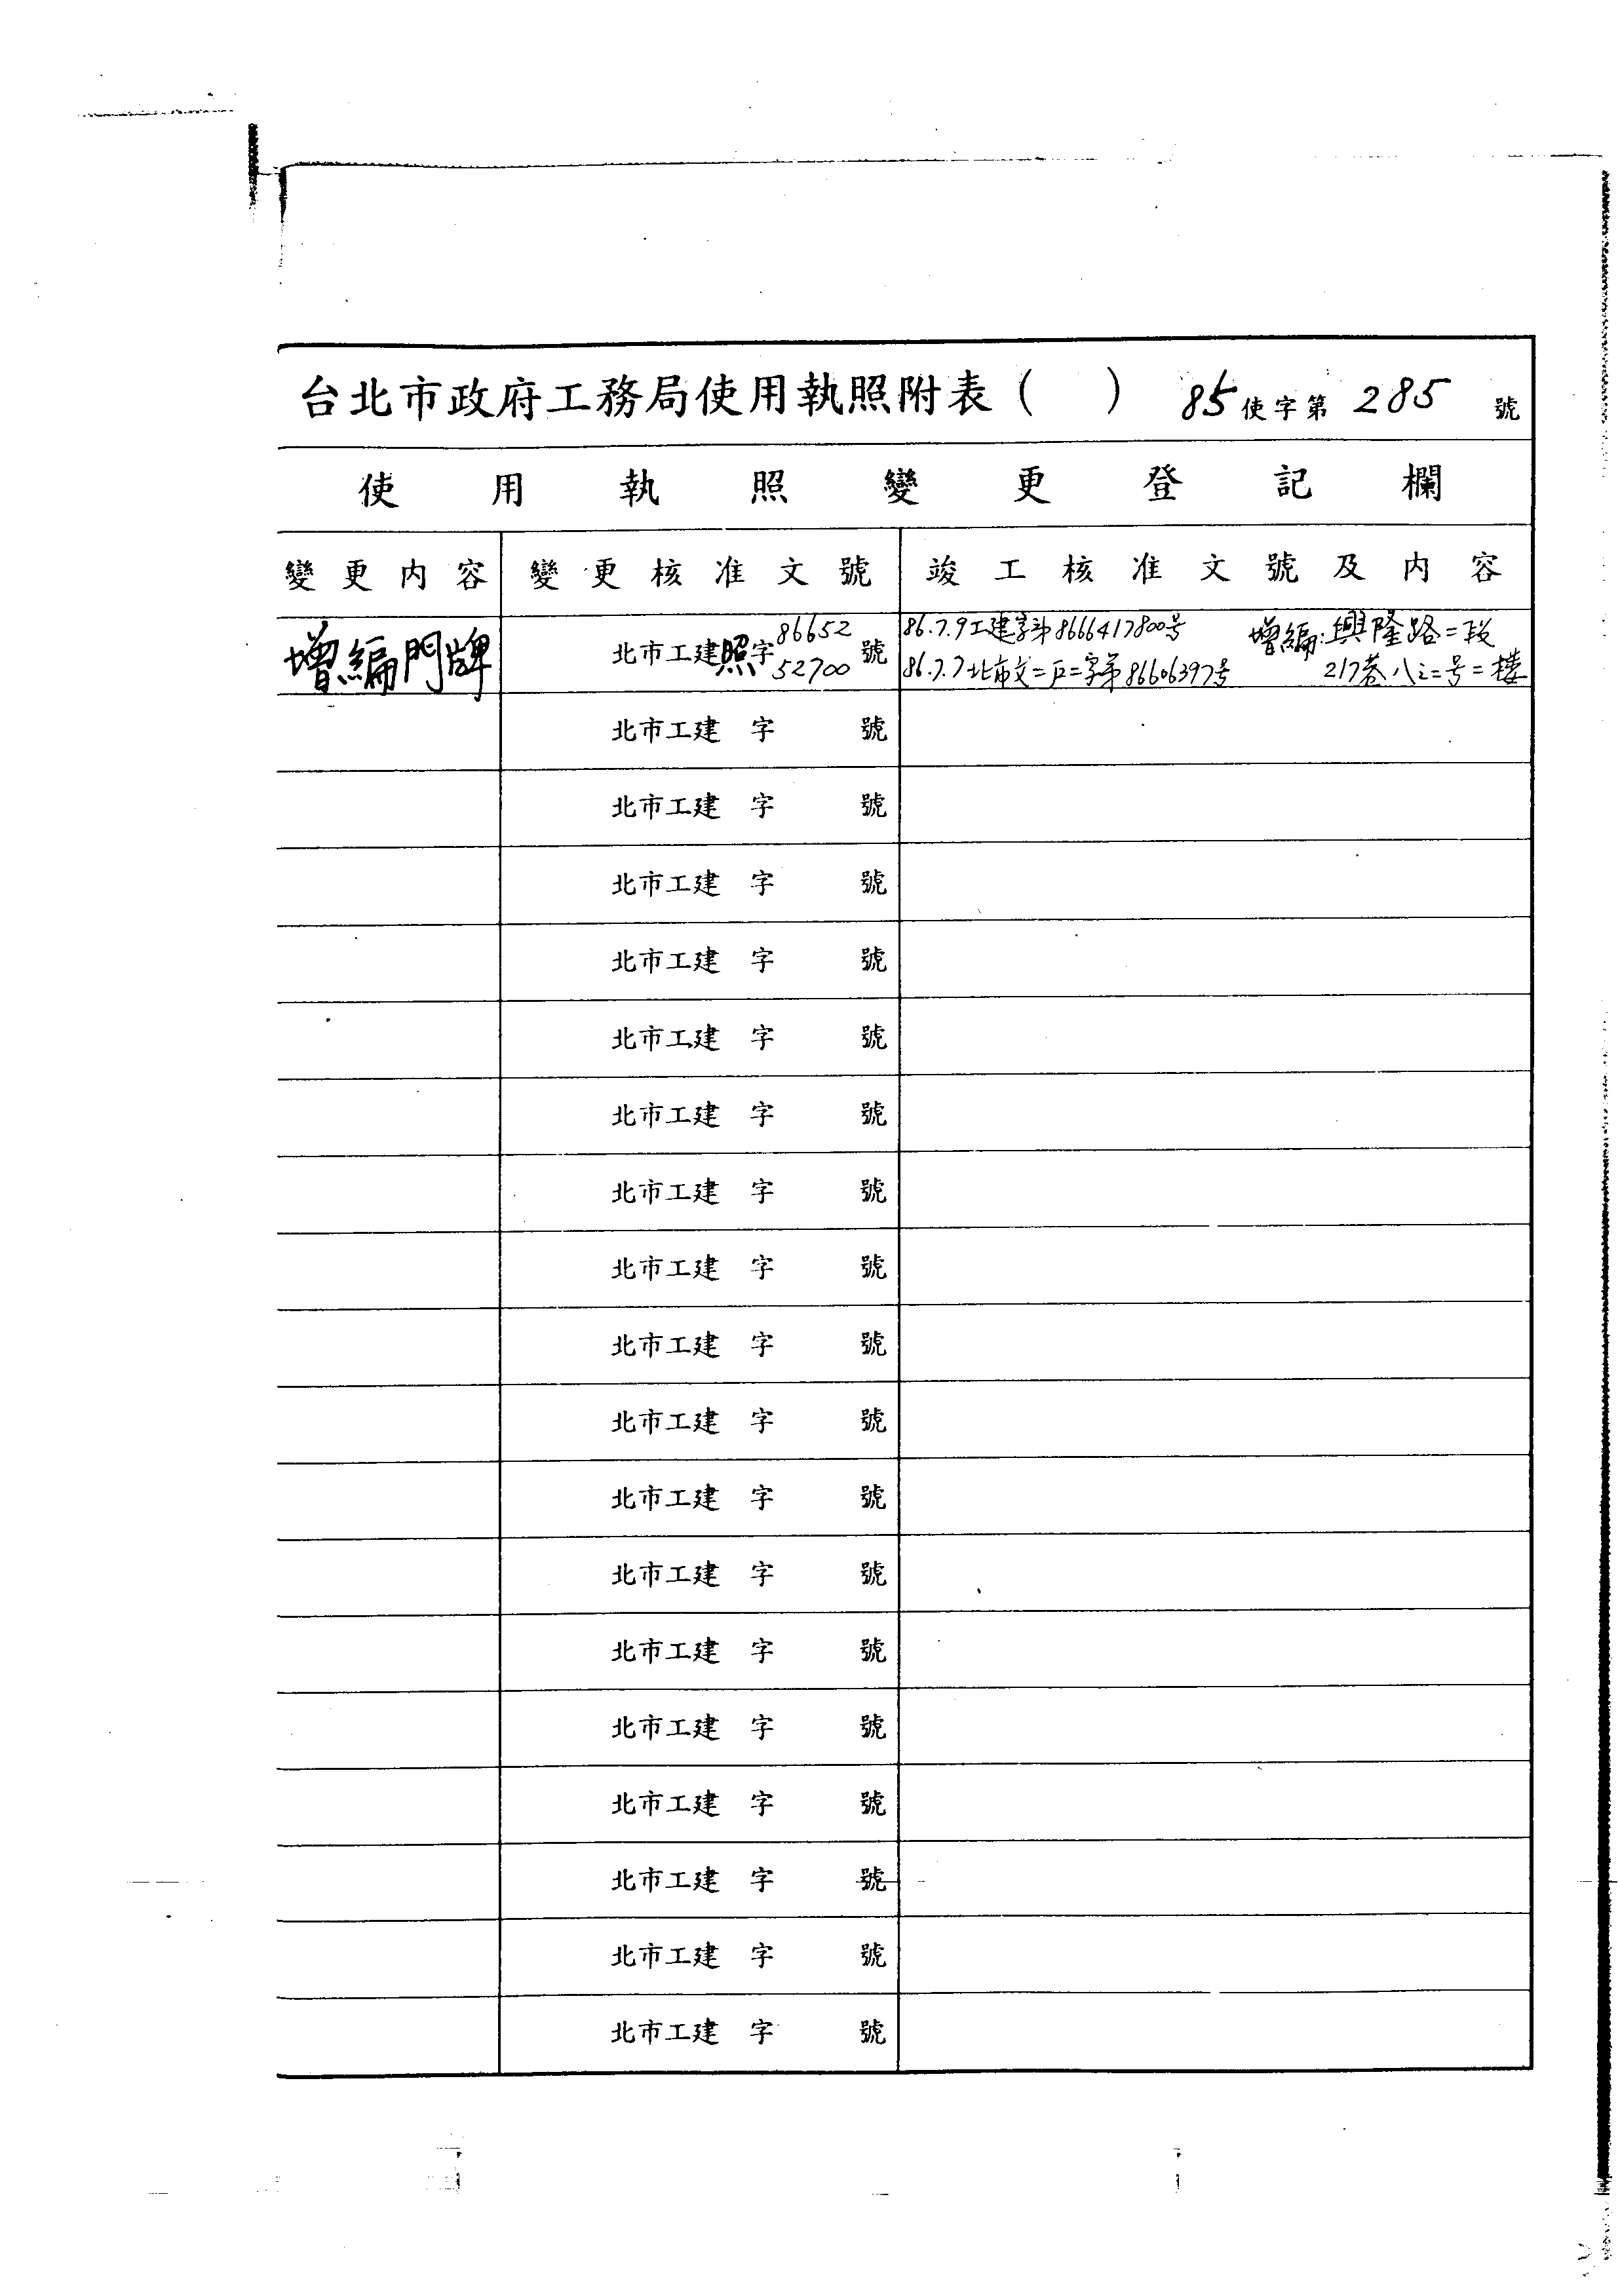 台北市政府工務局使用執照附表( ) 85使字第 285 號
使用執照變更登記欄
變更內容 變更核准文號 竣工核准文號及內容
增編門牌 北市工建照字 86652 52700 號
86.7.9工建字第8666417800号
86.7.7北市文二戶二字第86606397号
增編:興隆路二段
217巷八之二号二楼
北市工建 字 號
北市工建 字 號
北市工建 字 號
北市工建 字 號
北市工建 字 號
北市工建 字 號
北市工建 字 號
北市工建 字 號
北市工建 字 號
北市工建 字 號
北市工建 字 號
北市工建 字 號
北市工建 字 號
北市工建 字 號
北市工建 字 號
北市工建 字 號
北市工建 字 號
北市工建 字 號